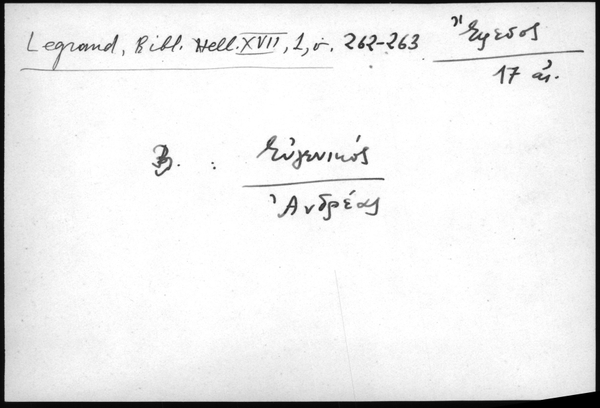 Legrand, Bibl. Hell. XVII, 1, σ. 262-263
Ἔφεσος
17 αἰ.
Β. : Εὐγενικός
Ἀνδρέας